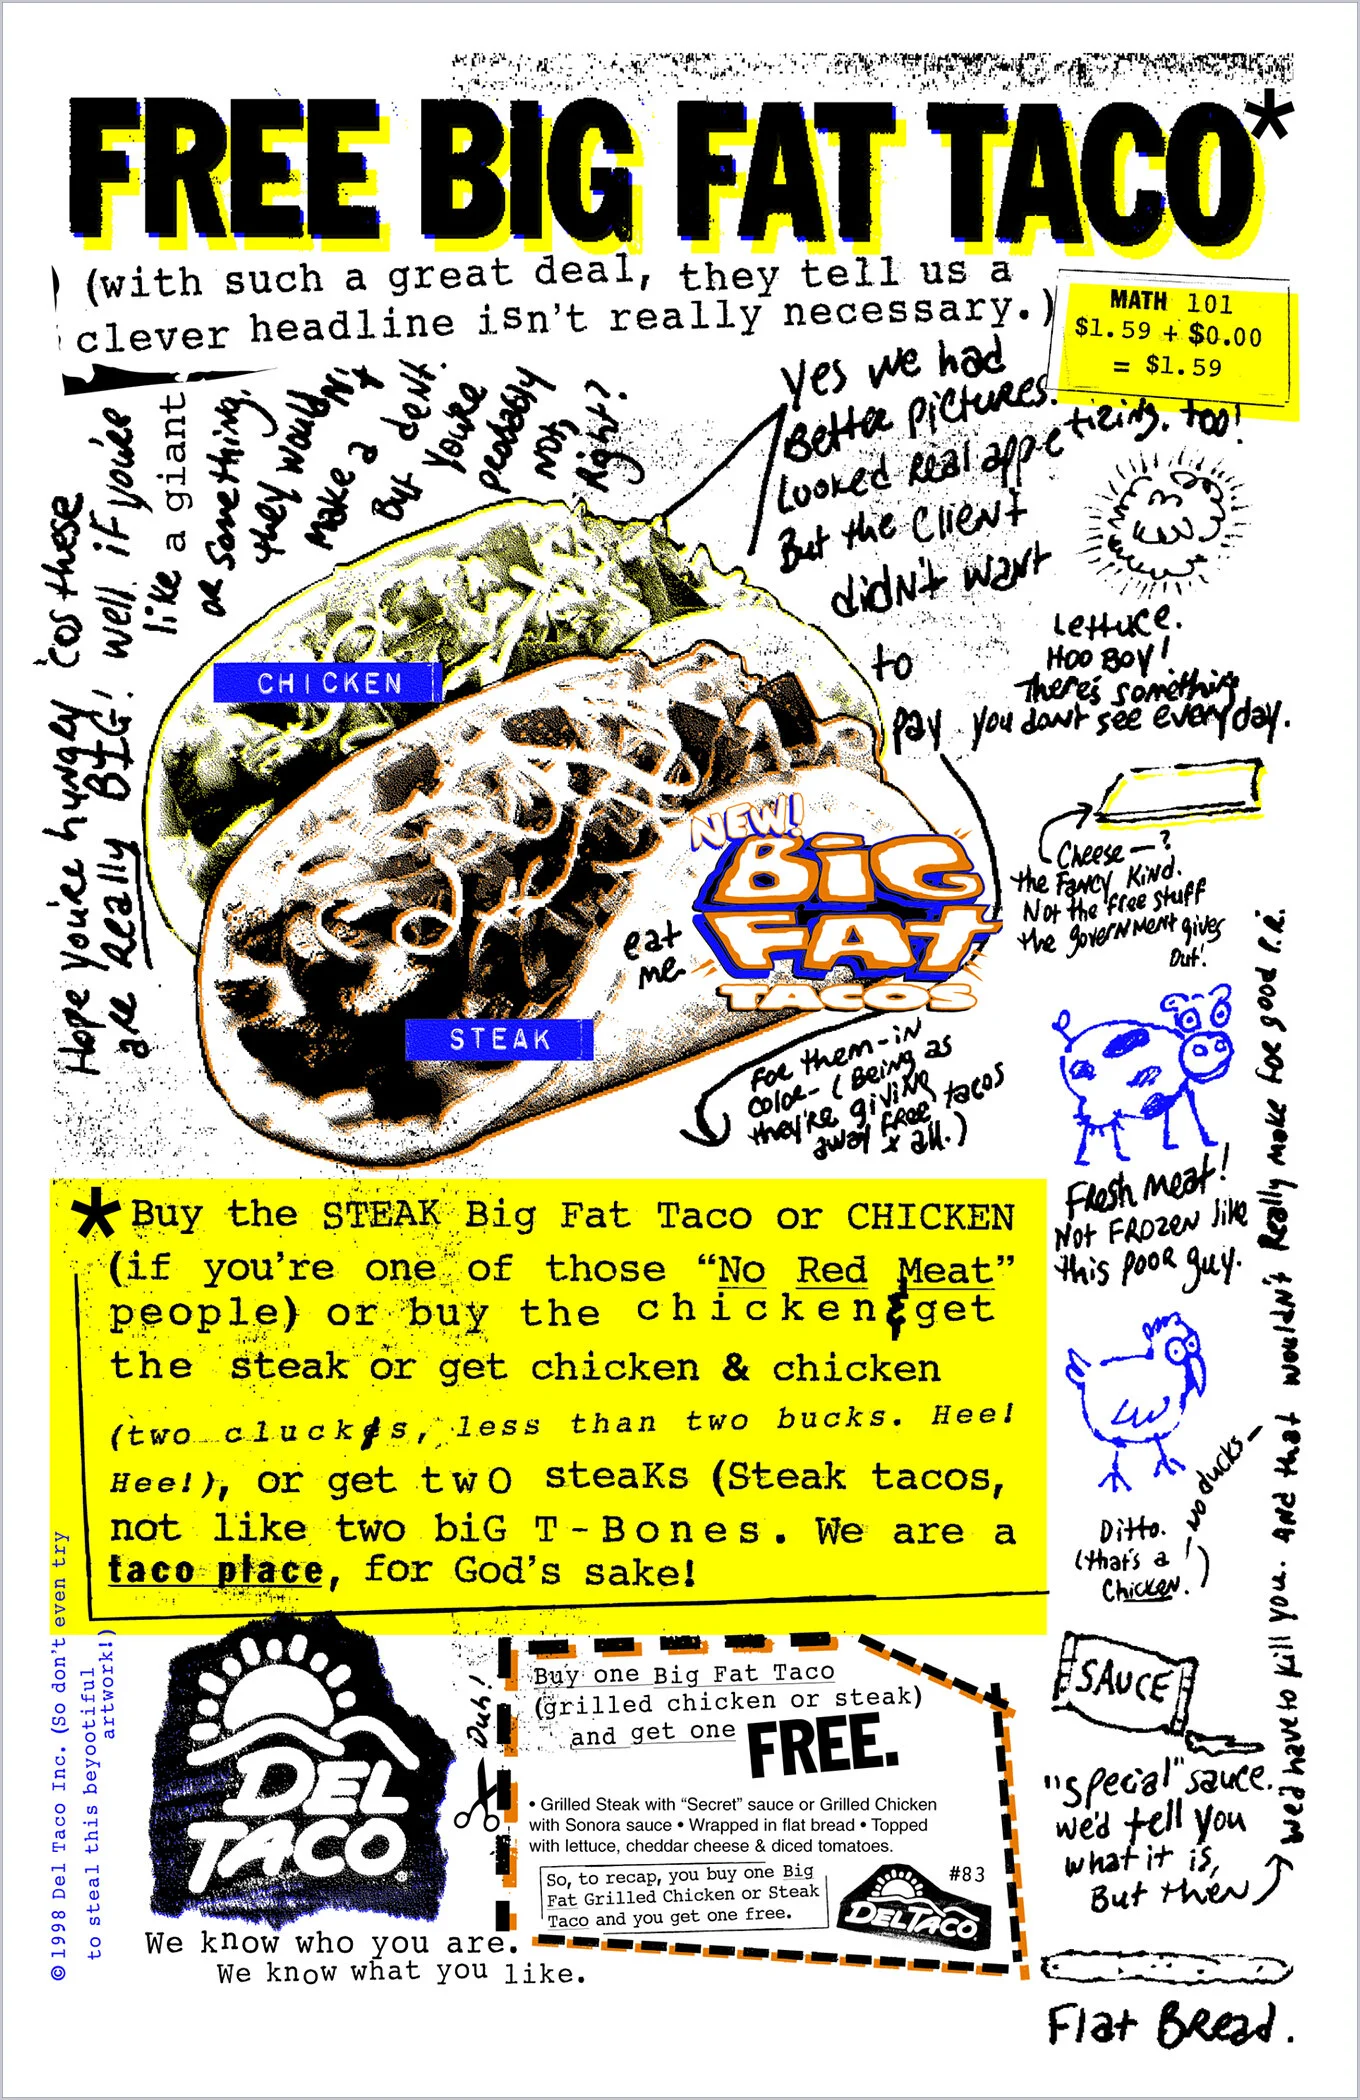 FREE BIG FAT TACO*
(with such a great deal, they tell us a
clever headline isn't really necessary.)
MATH 101
$1.59 + $0.00
= $1.59
Hope you're hungry 'cos these
are really BIG! well if you're
like a giant
or something,
they wouldn't
make a
But dent.
you're
probably
not,
right?
Yes we had
Better pictures.
Looked real appetizing, too!
But the client
didn't want
to
pay
Lettuce.
Hoo Boy!
There's something
you don't see everyday.
CHICKEN
STEAK
eat
me
NEW!
BiG
FAT
TACOS
Cheese — ?
the Fancy Kind.
Not the free stuff
the government gives
Out!
For them-in
color- (Being as
they're giving
away free tacos
& all.)
Fresh meat!
Not FROZEN like
this poor guy.
Ditto.
(that's a
Chicken.)
No ducks —
*Buy the STEAK Big Fat Taco or CHICKEN
(if you're one of those “No Red Meat”
people) or buy the chicken & get
the steak or get chicken & chicken
(two clucks, less than two bucks. Hee!
Hee!), or get twO steaKs (Steak tacos,
not like two biG T-Bones. We are a
taco place, for God's sake!
SAUCE
"special" sauce.
we'd tell you
what it is,
But then
we'd have to kill you. And that wouldn't Really make for good P.R.
Flat Bread.
©1998 Del Taco Inc. (So don't even try
to steal this beyootiful
artwork!)
DEL
TACO
We know who you are.
We know what you like.
Duh!
Buy one Big Fat Taco
(grilled chicken or steak)
and get one FREE.
• Grilled Steak with “Secret” sauce or Grilled Chicken
with Sonora sauce • Wrapped in flat bread • Topped
with lettuce, cheddar cheese & diced tomatoes.
So, to recap, you buy one Big
Fat Grilled Chicken or Steak
Taco and you get one free.
#83
DEL TACO